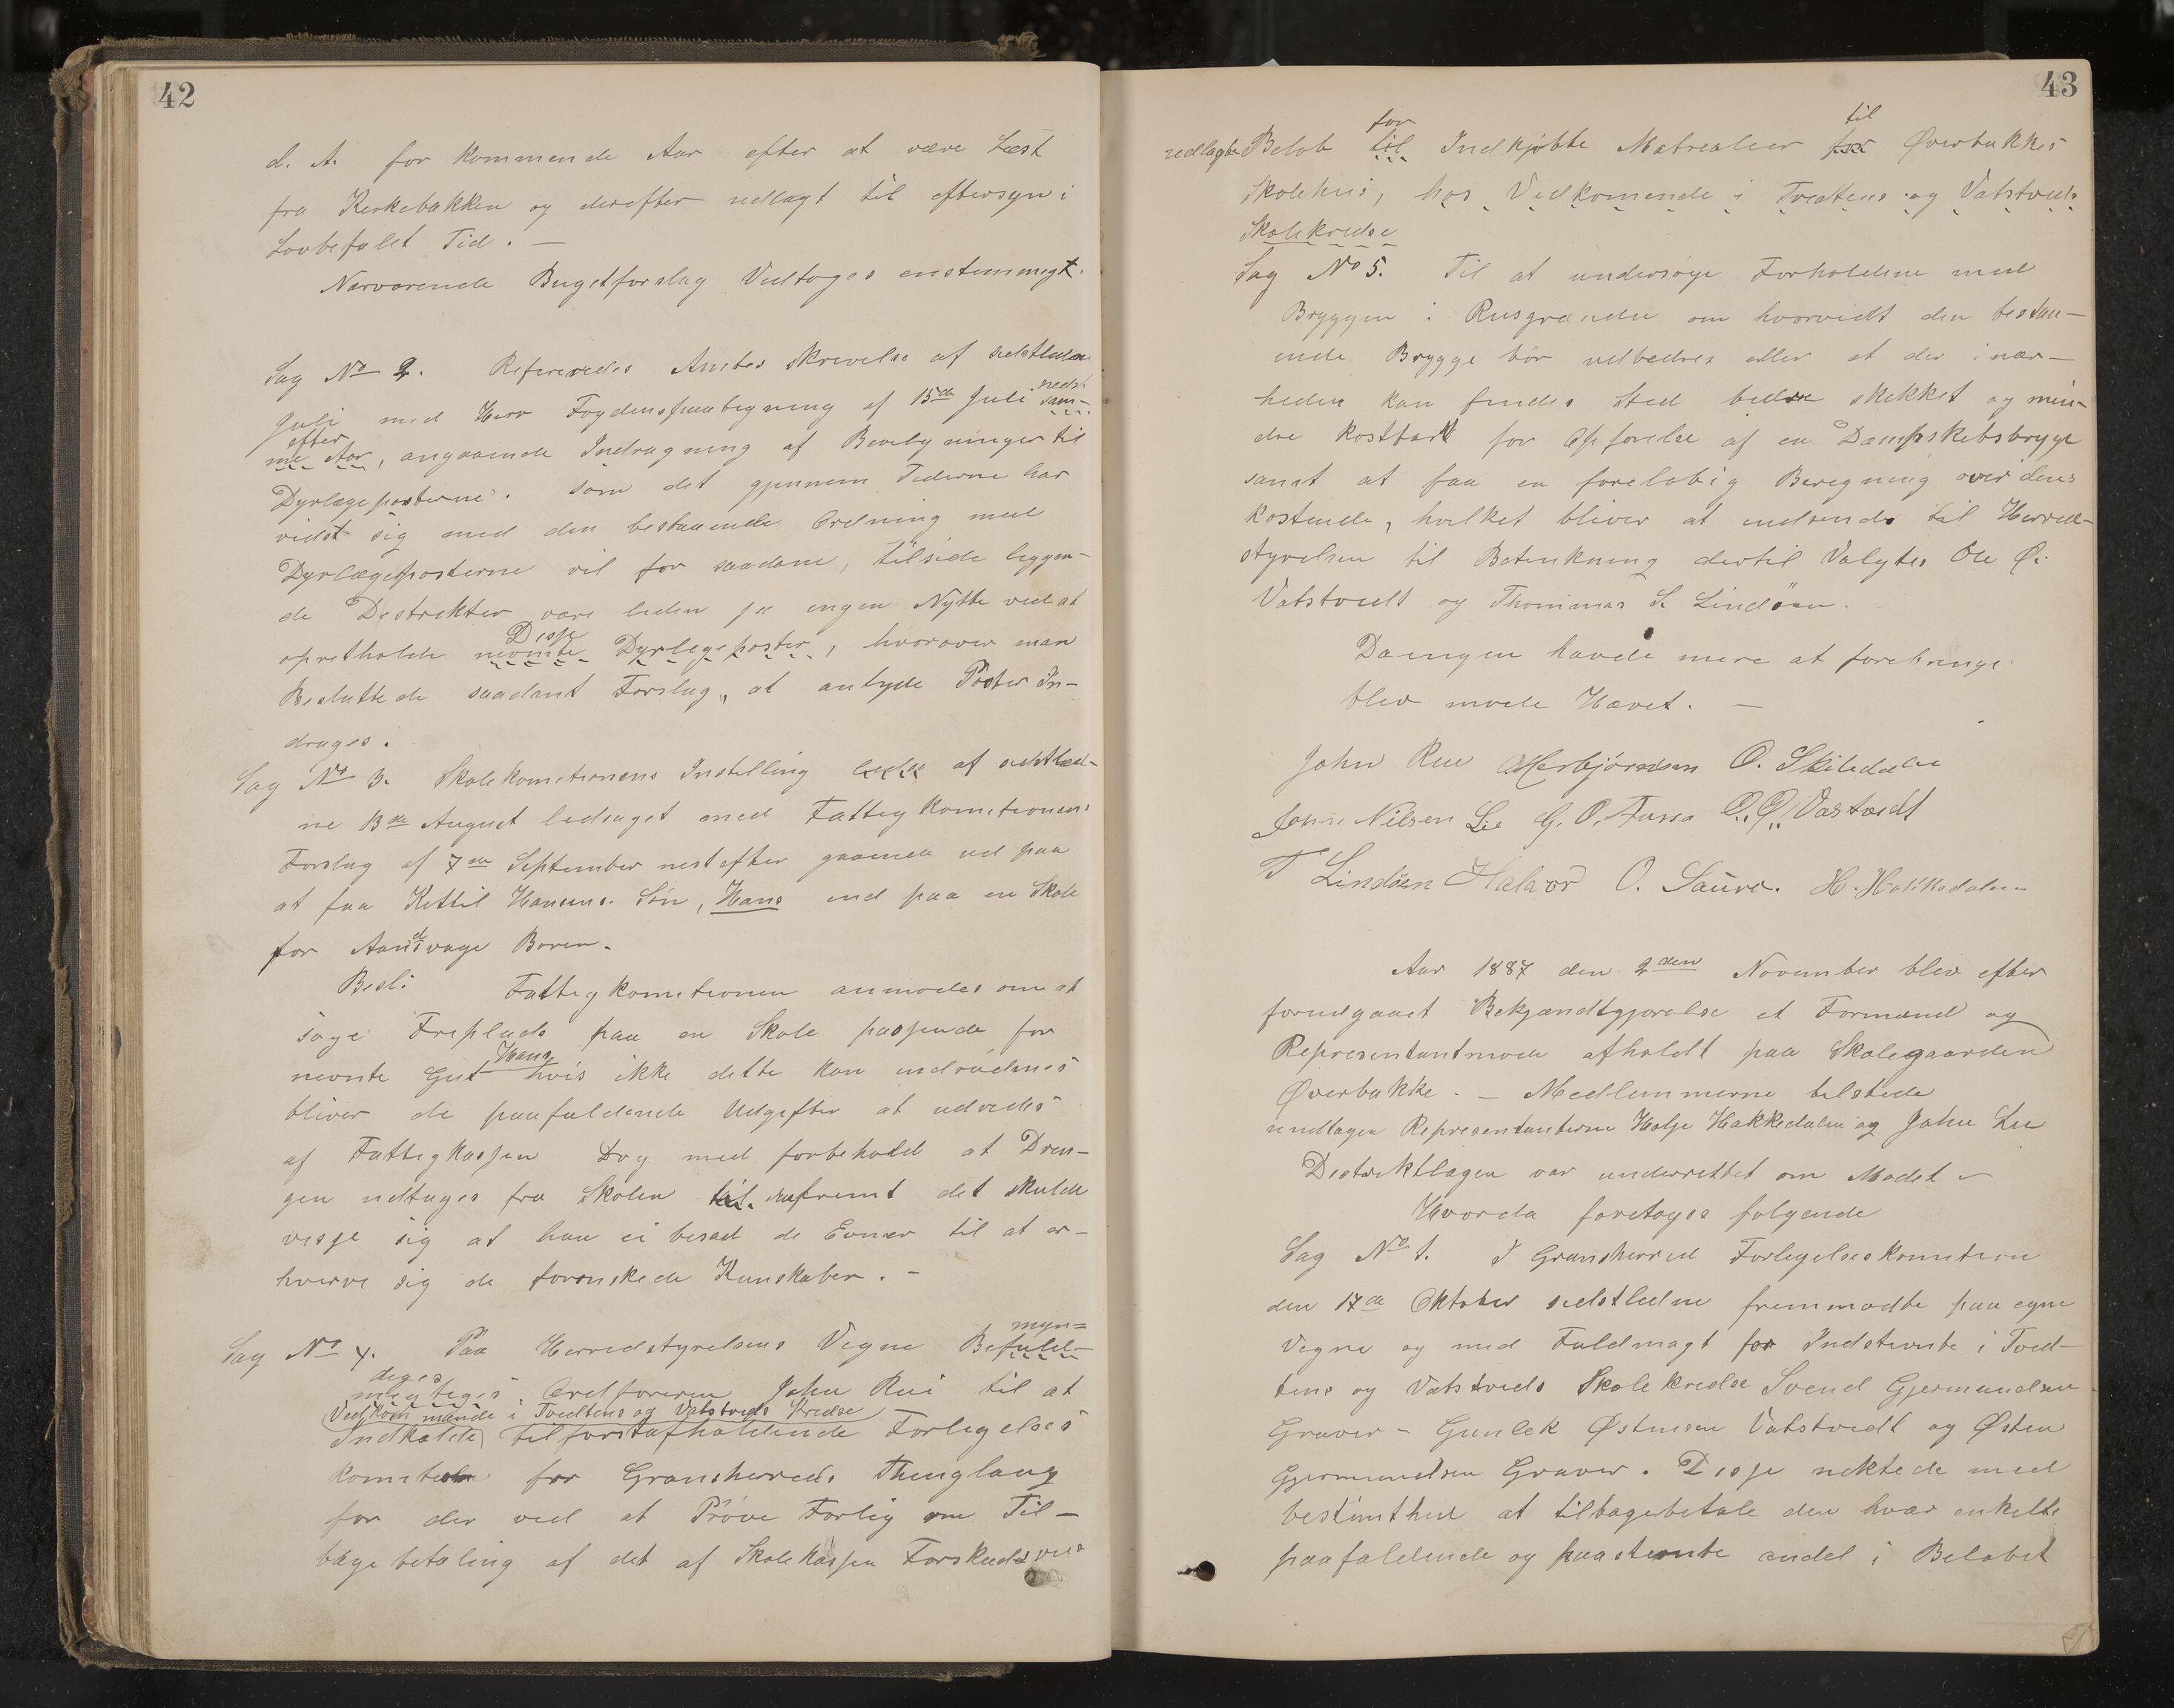 42
d. A. for kommende Aar efter at være Læst
fra Kirkebakken og derefter udlagt til eftersyn i
Lovbefalet Tid. —
Nærværende Bugetforslag Vedtoges enstemmigt.
Sag No 2. Refereredes Amtes skrivelse af sidstledne
Juli med Herr Fogdens paategning af 15de Juli næst
sam-
efter
me Aar, angaaende Indragning af Bevilgninger til
Dyrlægeposterne. Som det gjennem Tiderne har
vidst sig med den bestaaende Ordning med
Dyrlægeposterne vil for saadane, tilside liggen-
de Destrikter være liden ja ingen Nytte ved at
Disse
opretholde nevnte Dyrlegeposter, hvorover man
Besluttede saadant Forslag, at antyde Poster In-
drages.
Sag No 3. Skolekomitionens Instilling af sidstled-
ne 13de August ledsaget med Fattigkomitionens
Forslag af 7de September nestefter gaaende ud paa
at faa Kittil Hansens Søn, Hans ind paa en Skole
de
for Aansvage Boren.
Besl: Fattigkomitionen anmodes om at
søge Friplads paa en Skole passende for
Hans
nevnte Gut hvis ikke dette kan indrødmes
bliver de paafaldende Udgifter at udredes
af Fattigkassen Dog med forbehold at Dren-
gen udtages fra Skolen til saafremt det skulde
vesse sig at han ei besad de Evner til at er-
hverve sig de forønskede Kunskaber. —
myn=
Sag No 4. Paa Herredstyrelsens Vegne Befuld-
diges
megtiges Ordføreren John Rui til at
Vedkommende i Tvedtens og Vatstveds Kredse
Indkalde til førstafholdende Forligelses
komition for Gransherreds Thinglaug
for der ved at Prøve Forlig om Til-
bage betaling af det af Skolekassen Forskudsvis
43
for til
udlagte Beløb til Indkjøbte Matrealier for Øverbakkes
Skolehus, hos Vedkomende i Tvedtens og Vatstveds
Skolekredse
Sag No 5. Til at undersøge Forholdene med
Bryggen i Rusgrænden om hvorvidt den bestaa-
ende Brygge bør udbedres eller at der i nær-
heden kan findes Sted bedre skikket og min-
dre kostbart for Opførelse af en Dampskibsbrygge
samt at faa en foreløbig Beregning over dens
kostende, hvilket bliver at indsende til Herred-
styrelsen til Betenkning dertil Valgtes Ole Ø.
Vatstvedt og Thommas S. Lindøen.
Da ingen havde mere at forebringe
blev møde Hævet. —
John Rui A Herbjørnsen O. Skiledalen
John Nilsen Lie G. O. Fusso O. Ø. Vastvedt
T Lindøen Halvor O. Saure. H. Hakkedalen
Aar 1887 den 2den November blev efter
forudgaaet Bekjændtgjørelse et Formænd og
Representantmøde afholdt paa Skolegaarden
Øverbakke. — Medlemmerne tilstede
undtagen Representanterne Holje Hakkedalen og John Lie
Destriktlægen var underrettet om Mødet —
Hvorda foretoges følgende
Sag No 1. I Gransherred Forligelseskomition
den 17de Oktober sidstledne fremmødte paa egne
Vegne og med Fuldmagt for Indstevnte i Tved-
tens og Vatstveds Skolekredse Svend Gjermundsen
Graver - Gunlek Østensen Vatstvedt og Østen
Gjermundsen Graver. Disse nektede med
bestimthed at tilbagebetale den hvær enkelte
paafaldende og paastevnte andel i Beløbet